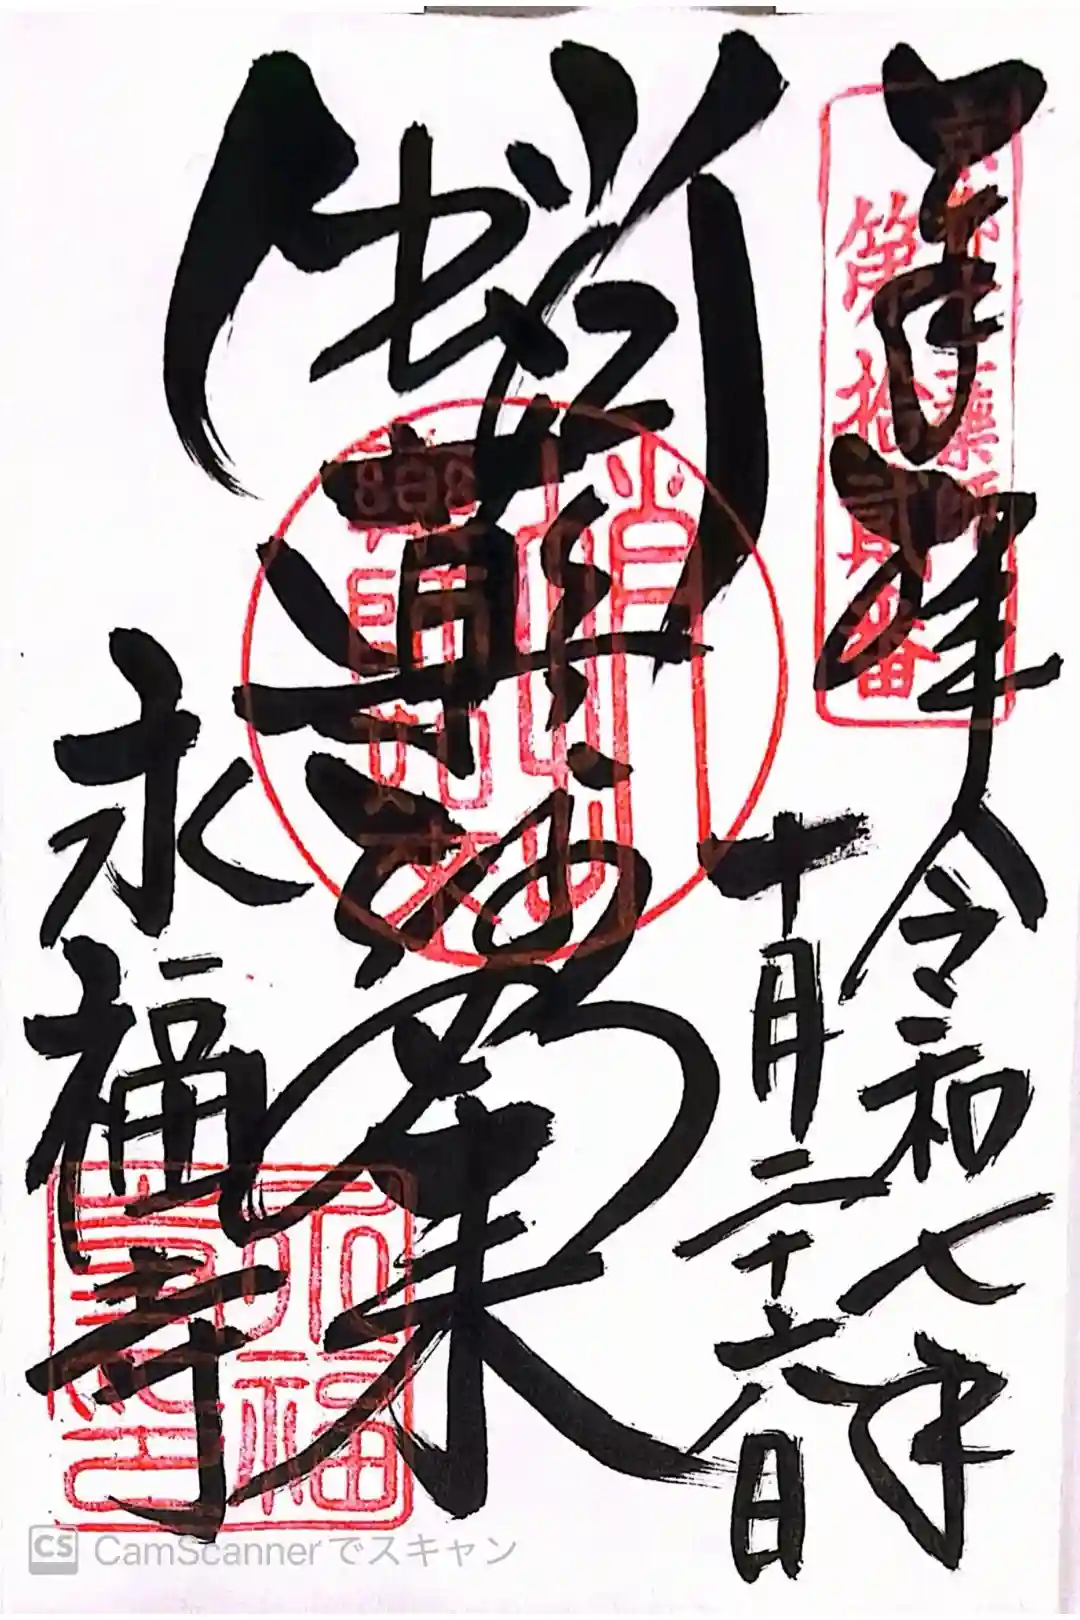 奉拝
京都十二薬師
第拾貳番
令和七年
十月二十六日
蛸薬師如来
永福寺
CS CamScannerでスキャン